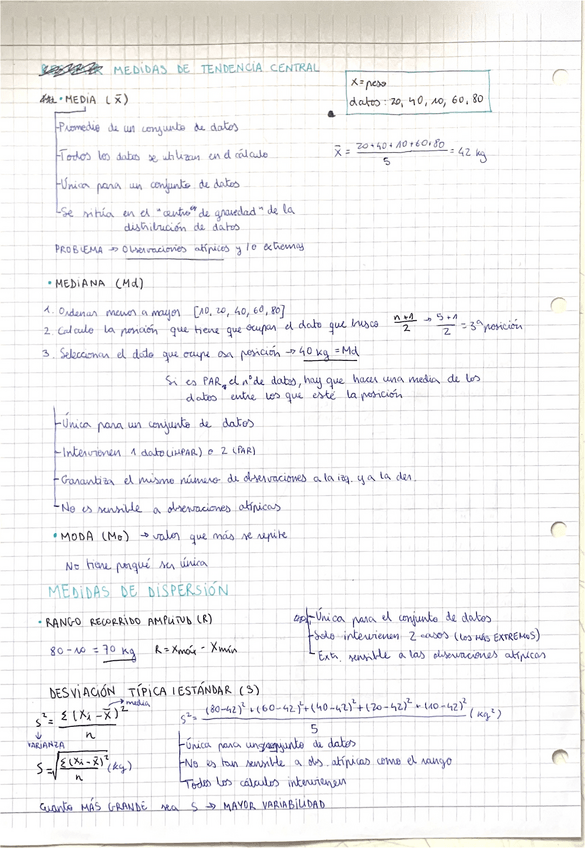 MEDIDAS DE TENDENCIA CENTRAL
x = peso
datos: 20, 40, 10, 60, 80
• MEDIA (x̄)
Promedio de un conjunto de datos
Todos los datos se utilizan en el cálculo
x̄ = (20+40+10+60+80)/5 = 42 kg
Única para un conjunto de datos
Se sitúa en el "centro" de gravedad" de la
distribución de datos
PROBLEMA → Observaciones atípicas y/o extremas
• MEDIANA (Md)
1. Ordenas menor a mayor [10, 20, 40, 60, 80]
2. Calculo la posición que tiene que ocupar el dato que busco (n+1)/2 → (5+1)/2 = 3ª posición
3. Seleccionar el dato que ocupe esa posición → 40 kg = Md
Si es PAR el nº de datos, hay que hacer una media de los
datos entre los que esté la posición
Única para un conjunto de datos
Intervienen 1 dato (IMPAR) o 2 (PAR)
Garantiza el mismo número de observaciones a la izq. y a la der.
No es sensible a observaciones atípicas
• MODA (Mo) → valor que más se repite
No tiene porqué ser única
MEDIDAS DE DISPERSIÓN
• RANGO RECORRIDO AMPLITUD (R)
80 - 10 = 70 kg R = Xmáx - Xmín
Única para el conjunto de datos
Solo intervienen 2 casos (LOS MÁS EXTREMOS)
Extr. sensible a las observaciones atípicas
DESVIACIÓN TÍPICA / ESTÁNDAR (S)
S² = Σ(Xi - x̄)²/n → media
S² = ((80-42)² + (60-42)² + (40-42)² + (20-42)² + (10-42)²)/5 (kg²)
VARIANZA
S = √(Σ(Xi - x̄)²/n) (kg)
Única para un conjunto de datos
No es tan sensible a obs. atípicas como el rango
Todos los cálculos intervienen
Cuanto MÁS GRANDE sea S → MAYOR VARIABILIDAD